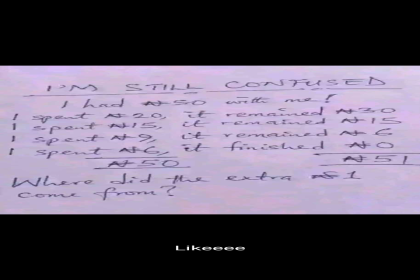 I'M STILL CONFUSED
I had ₦50 with me!
I spent ₦20, it remained ₦30
I spent ₦15, it remained ₦15
I spent ₦9, it remained ₦6
I spent ₦6, it finished ₦0
₦50 ₦51
Where did the extra ₦1
come from?
Likeeeee